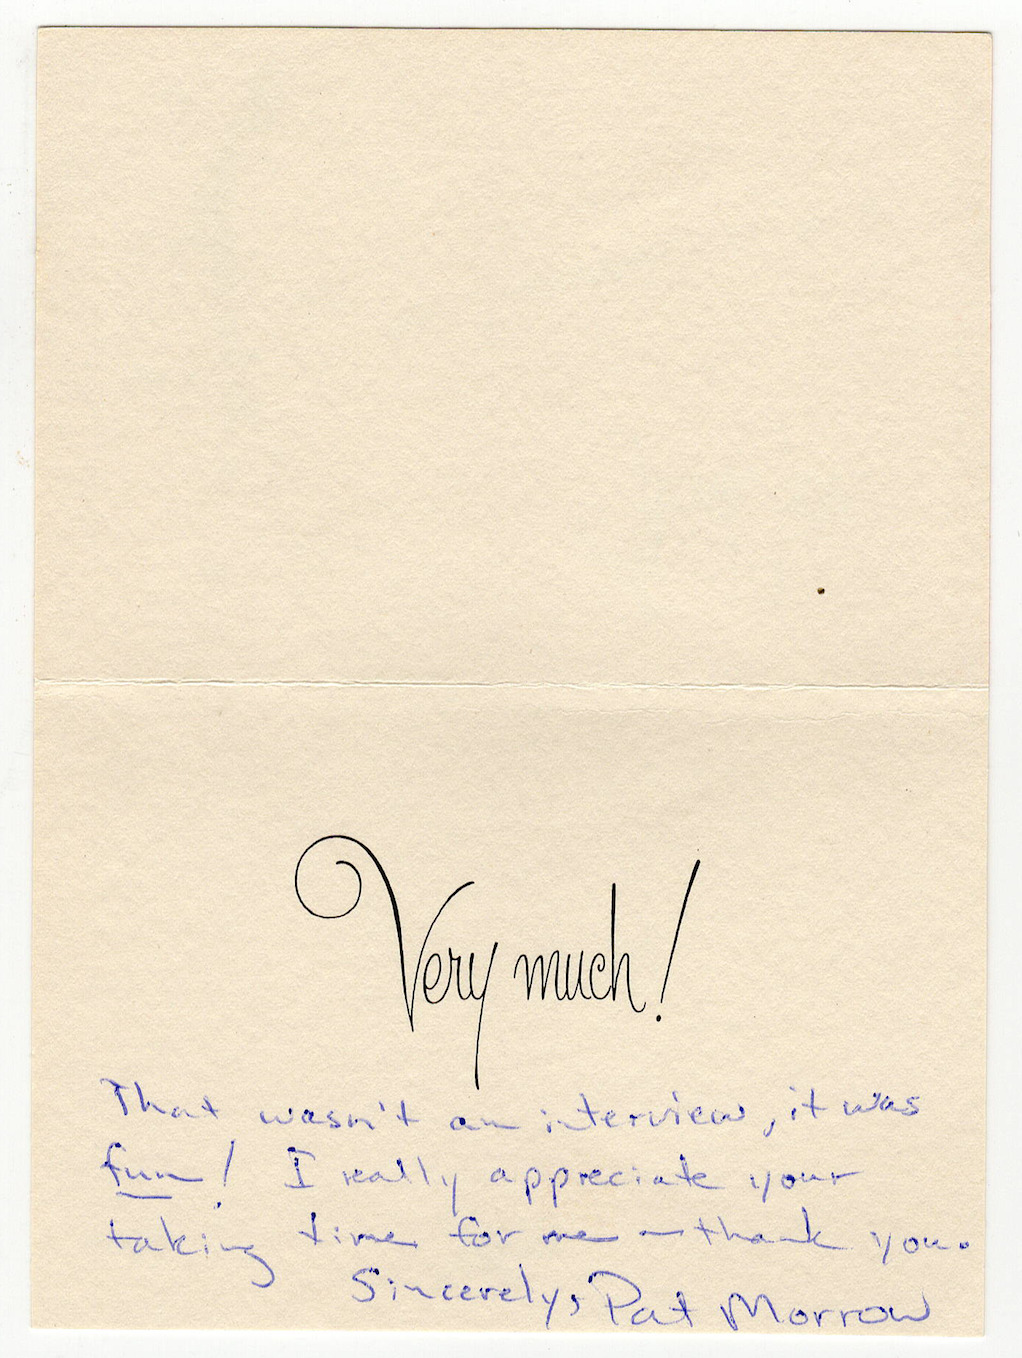 Very much!
That wasn't an interview, it was
fun! I really appreciate your
taking time for me - thank you.
Sincerely, Pat Morrow